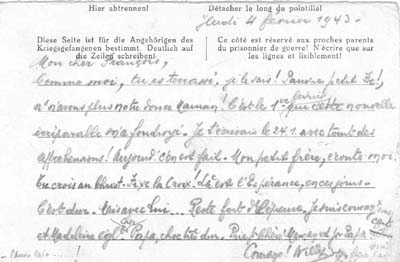 Hier abtrennen!
Détacher le long du pointillé
Jeudi 4 février 1943-
Diese Seite ist für die Angehörigen des
Kriegsgefangenen bestimmt. Deutlich auf
die Zeilen schreiben!
Ce côté est réservé aux proches parents
du prisonnier de guerre! N'écrire que sur
les lignes et lisiblement!
Mon cher François,
Comme moi, tu es terrassé, je le sais! Pauvre petit
n'avons plus notre douce maman! C'est le 1er février que cette nouvelle
irréparable m'a foudroyé. Je t'écrivais le 24.1. avec tant des
appréhensions! Aujourd'c'en est fait. Mon petit frère, écoute moi.
Tu crois au Christ. Fixe la Croix! Là est l'Espérance, en ces jours-
C'est dur. Mais avec Lui... Reste fort d'l'épreuve, je suis
et Madeleine cher Papa, choc très dur. Prie chère Maman et pr Papa
Courage! Willy